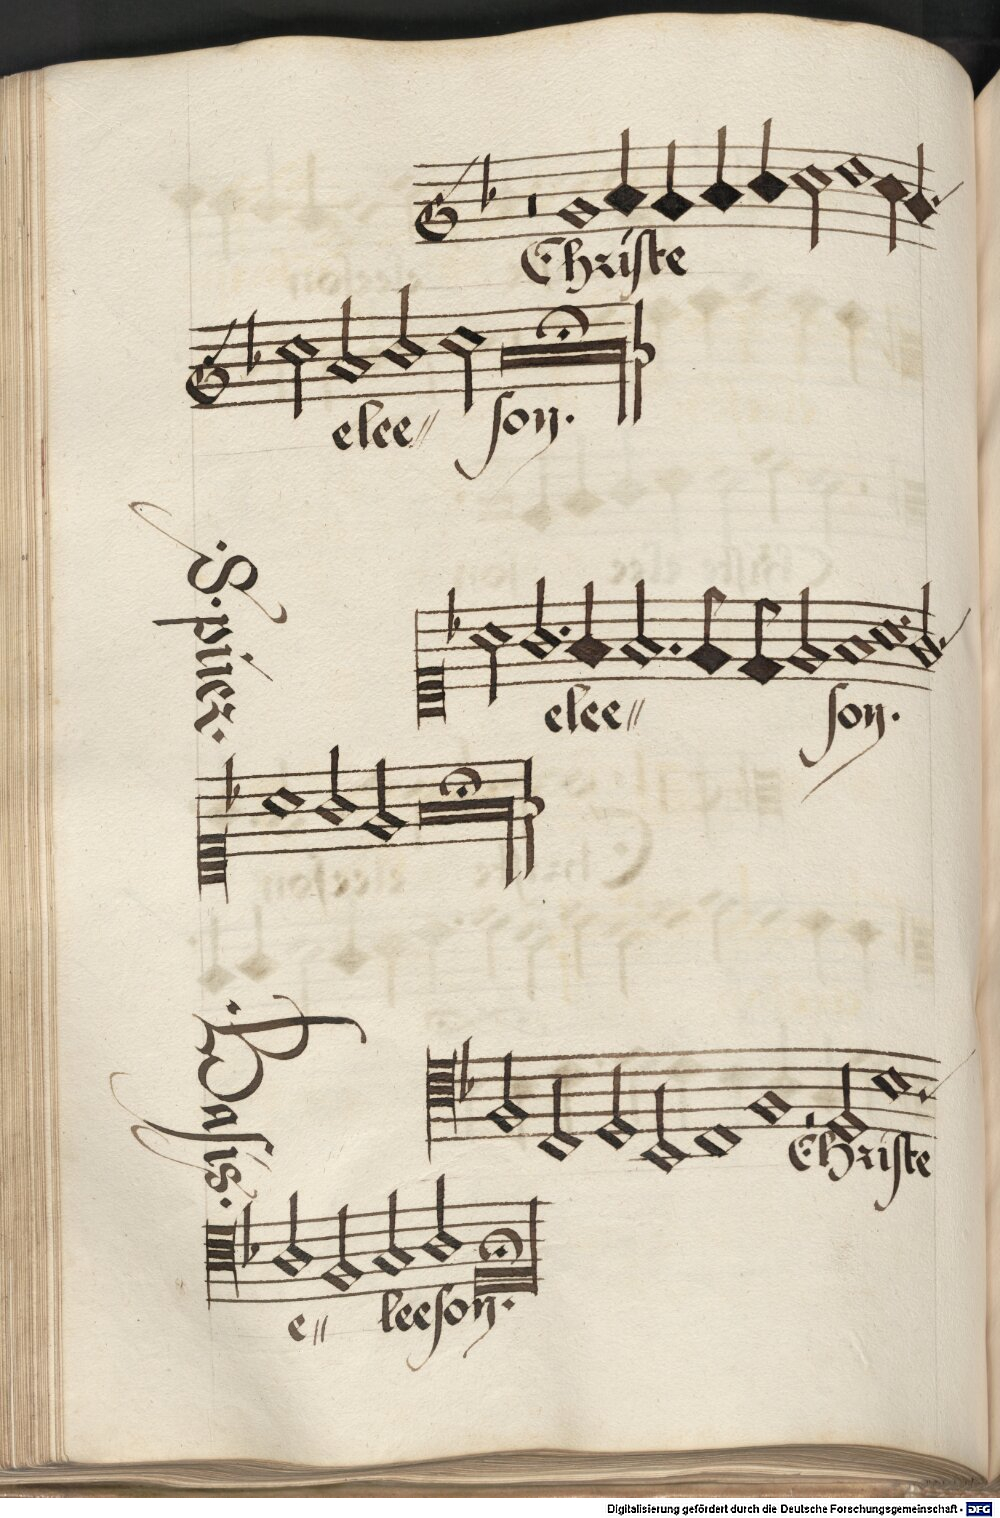 Christe
elee〃 son.
.S.piiez.
elee〃 son.
.Basis.
Christe
e〃 leeson.
Digitalisierung gefördert durch die Deutsche Forschungsgemeinschaft - DFG